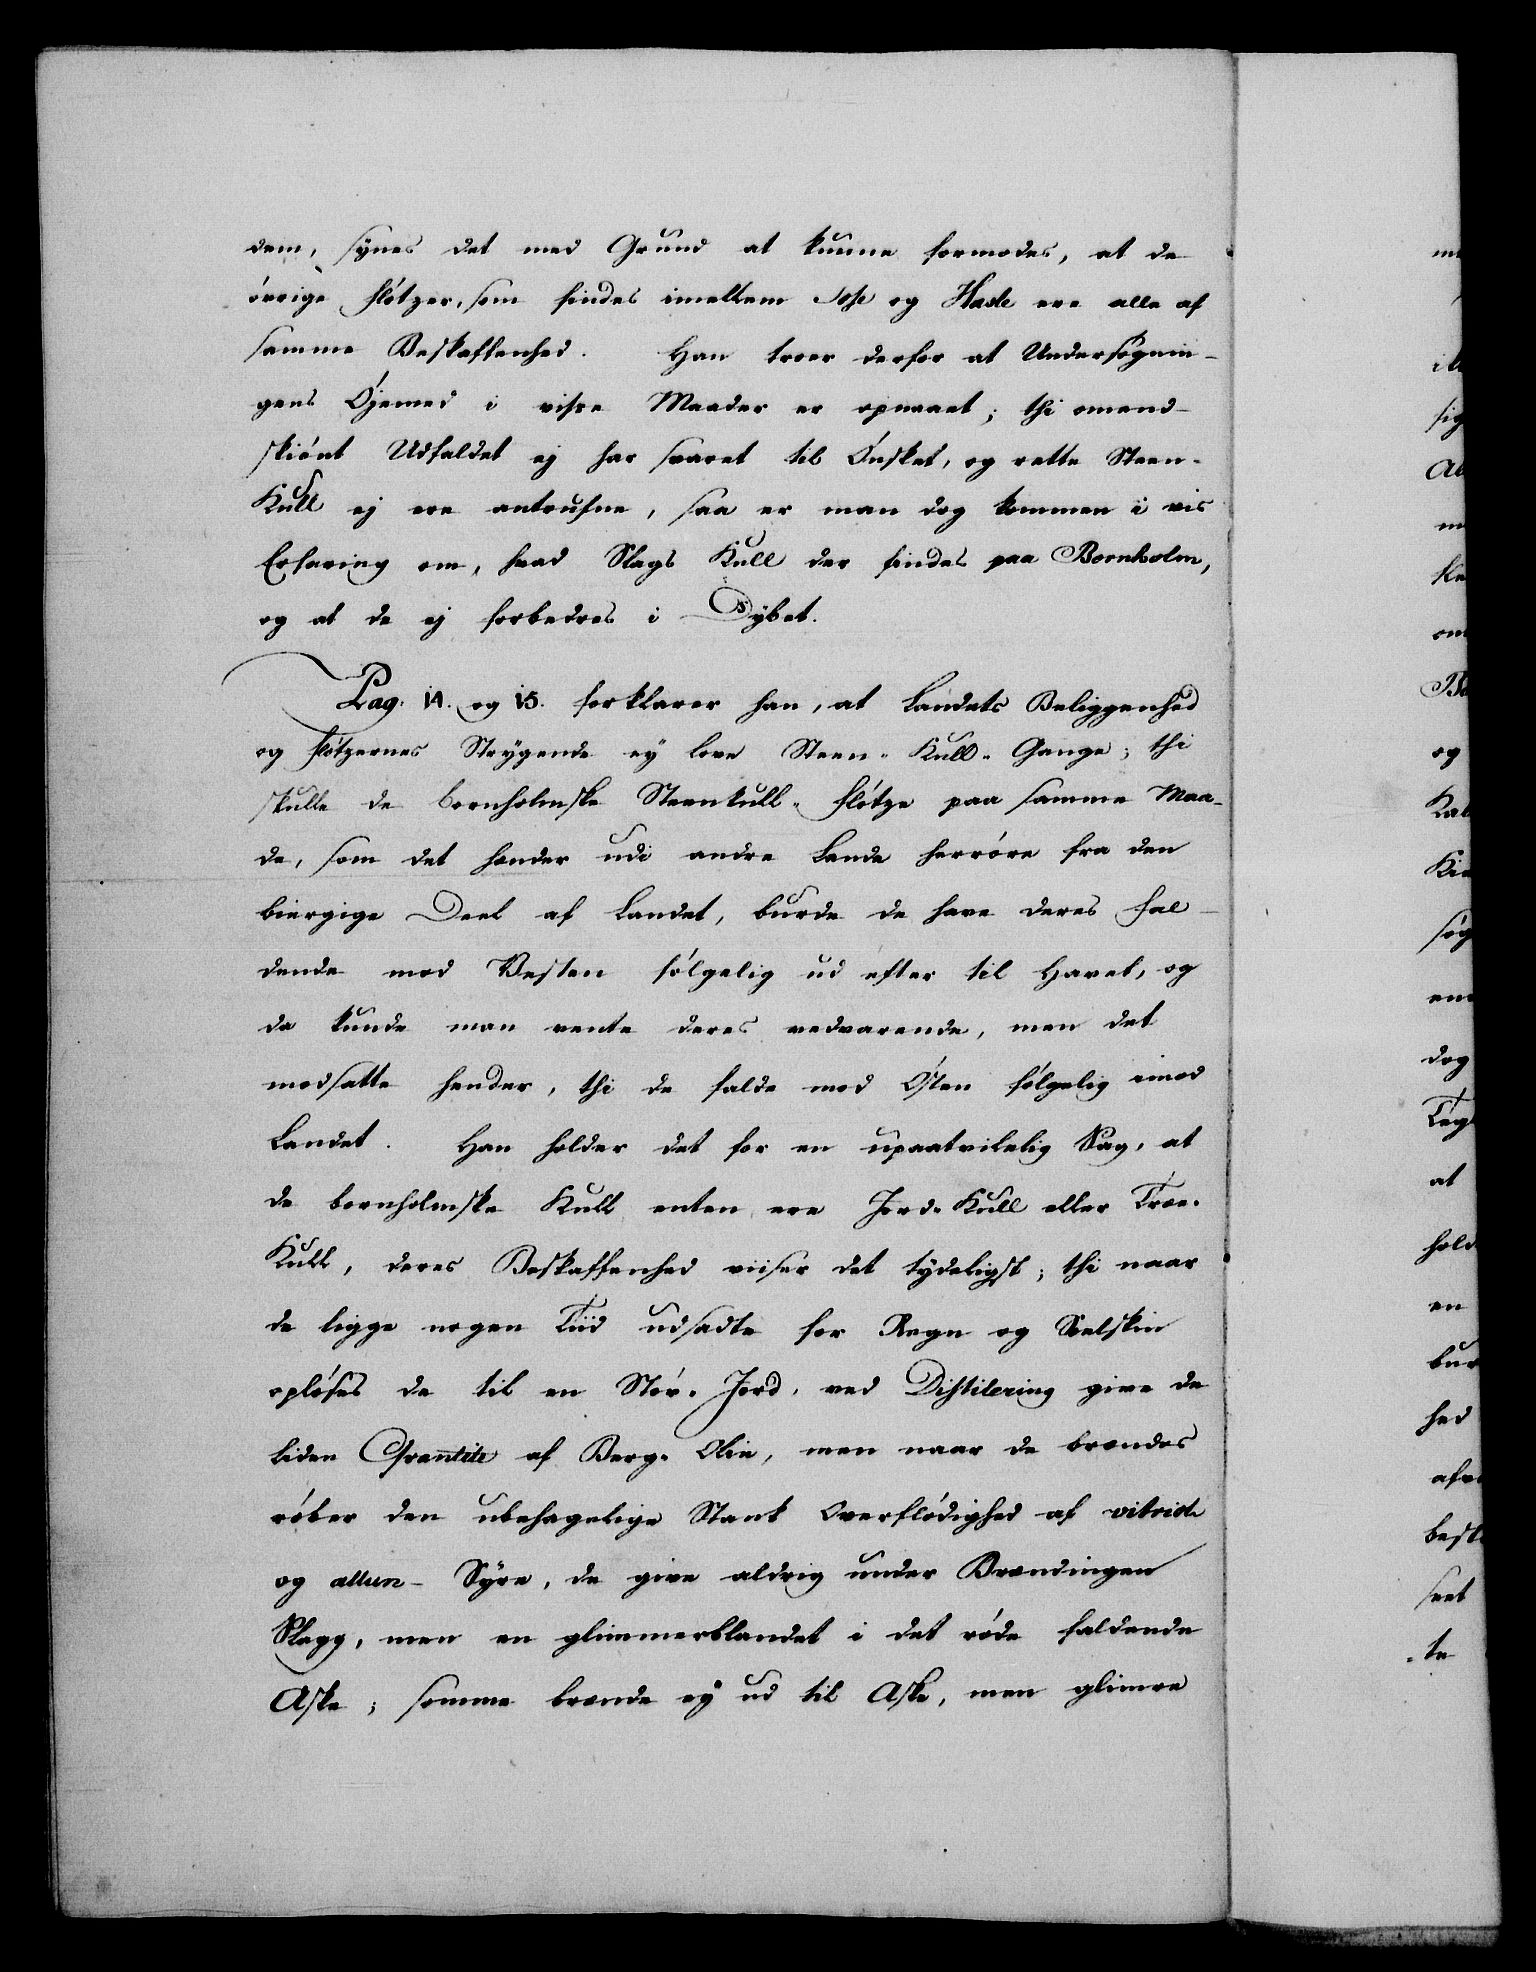 dem, synes det med Grund at kunne formodes, at de
övrige flötzer, som findes imellem og Hasle ere alle af
samme Beskaffenhed. Han troer derfor at Undersögnin-
gens Öjemed i visse Maader er opnaaet; thi omend-
skiönt Udfaldet ej har svaret til Önsket, og rette Steen-
Kull ej ere antrufne, saa er man dog kommen i vis
Erfaring om, hvad Slags Kull der findes paa Bornholm,
og at de ej forbedres i Dÿbet.
Pag. 14. og 15. forklarer han, at Landets Beliggenhed
og flötzernes Strygende eÿ love Steen-Kull-Gange; thi
skulle de bornholmske Steenkull-flötze paa samme Maa-
de, som det hænder udi andre Lande herröre fra den
biergige Deel af Landet, burde de have deres fal-
dende mod Vesten fölgelig ud efter til Havet, og
da kunde man vente deres vedvarende, men det
modsatte hender, thi de falde mod Östen fölgelig imod
Landet. Han holder det for en upaatvilelig Sag, at
de bornholmske Kull enten ere Jord-Kull eller Træe-
Kull, deres Beskaffenhed viiser det tÿdeligst; thi naar
de ligge nogen Tiid udsadte for Regn og Soelskin
oplöses de til en Stöv-Jord, ved Distilering give de
liden Qvantite af Berg-Olie, men naar de brændes
röber den ubehagelige Stank Overflödighed af vitriol
og allun-Sÿre, de give aldrig under Brændingen
Slagg, men en glimmerblandet i det röde faldende
Aske; somme brænde eÿ ud til Aske, men glimre